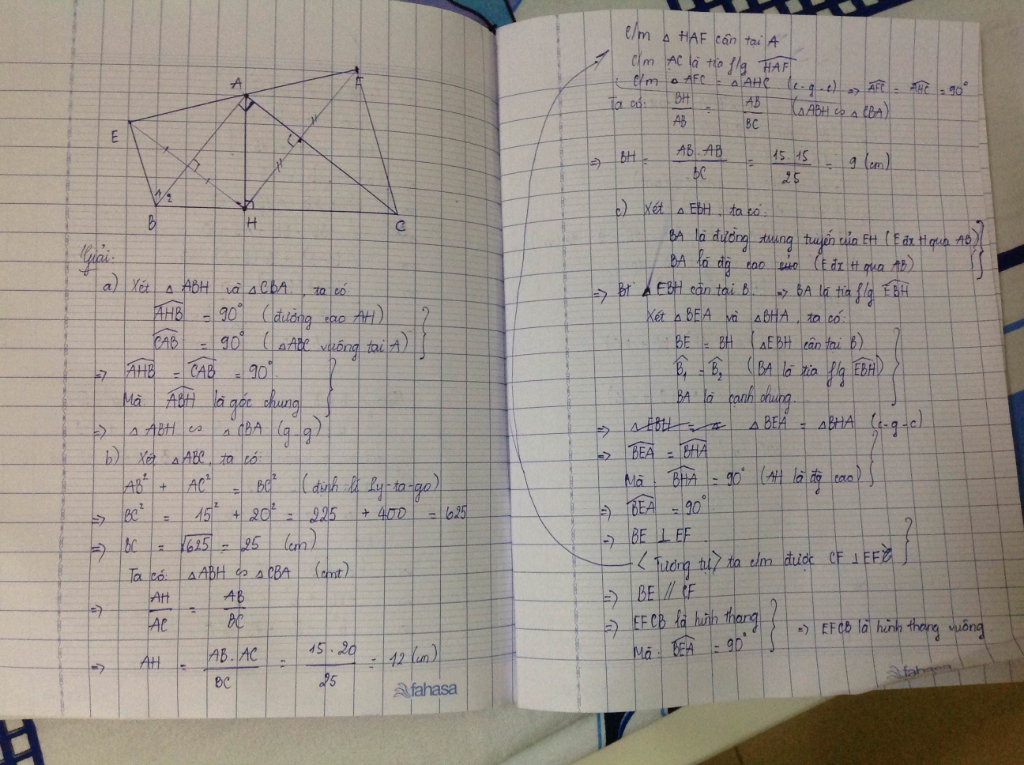 A
F
E
B
H
C
1
2
Giải:
a) Xét △ ABH và △CBA, ta có
AHB = 90° (đường cao AH)
CAB = 90° (△ABC vuông tại A)
=> AHB = CAB = 90°
Mà ABH là góc chung
=> △ ABH ∽ △CBA (g-g)
b) Xét △ABC, ta có:
AB² + AC² = BC² (định lí Py-ta-go)
=> BC² = 15² + 20² = 225 + 400 = 625
=> BC = √625 = 25 (cm)
Ta có: △ABH ∽ △CBA (cmt)
=> AH/AC = AB/BC
=> AH = AB.AC/BC = 15.20/25 = 12 (cm)
fahasa
c/m △ HAF cân tại A
c/m AC là tia f/g HAF
c/m △ AFC = △AHC (c-g-c) => AFC = AHC = 90°
Ta có: BH/AB = AB/BC (△ABH ∽ △CBA)
=> BH = AB.AB/BC = 15.15/25 = 9 (cm)
c) Xét △EBH, ta có:
BA là đường trung tuyến của EH (E đx H qua AB)
BA là đg cao (E đx H qua AB)
=> △EBH cân tại B. => BA là tia f/g EBH
Xét △BEA và △BHA, ta có:
BE = BH (△EBH cân tại B)
B₁ = B₂ (BA là tia f/g EBH)
BA là cạnh chung
=> △BEA = △BHA (c-g-c)
=> BEA = BHA
Mà: BHA = 90° (AH là đg cao)
=> BEA = 90°
=> BE ⊥ EF
<Tương tự> ta c/m được CF ⊥ EF
=> BE // CF
=> EFCB là hình thang
Mà: BEA = 90°
=> EFCB là hình thang vuông
fahasa